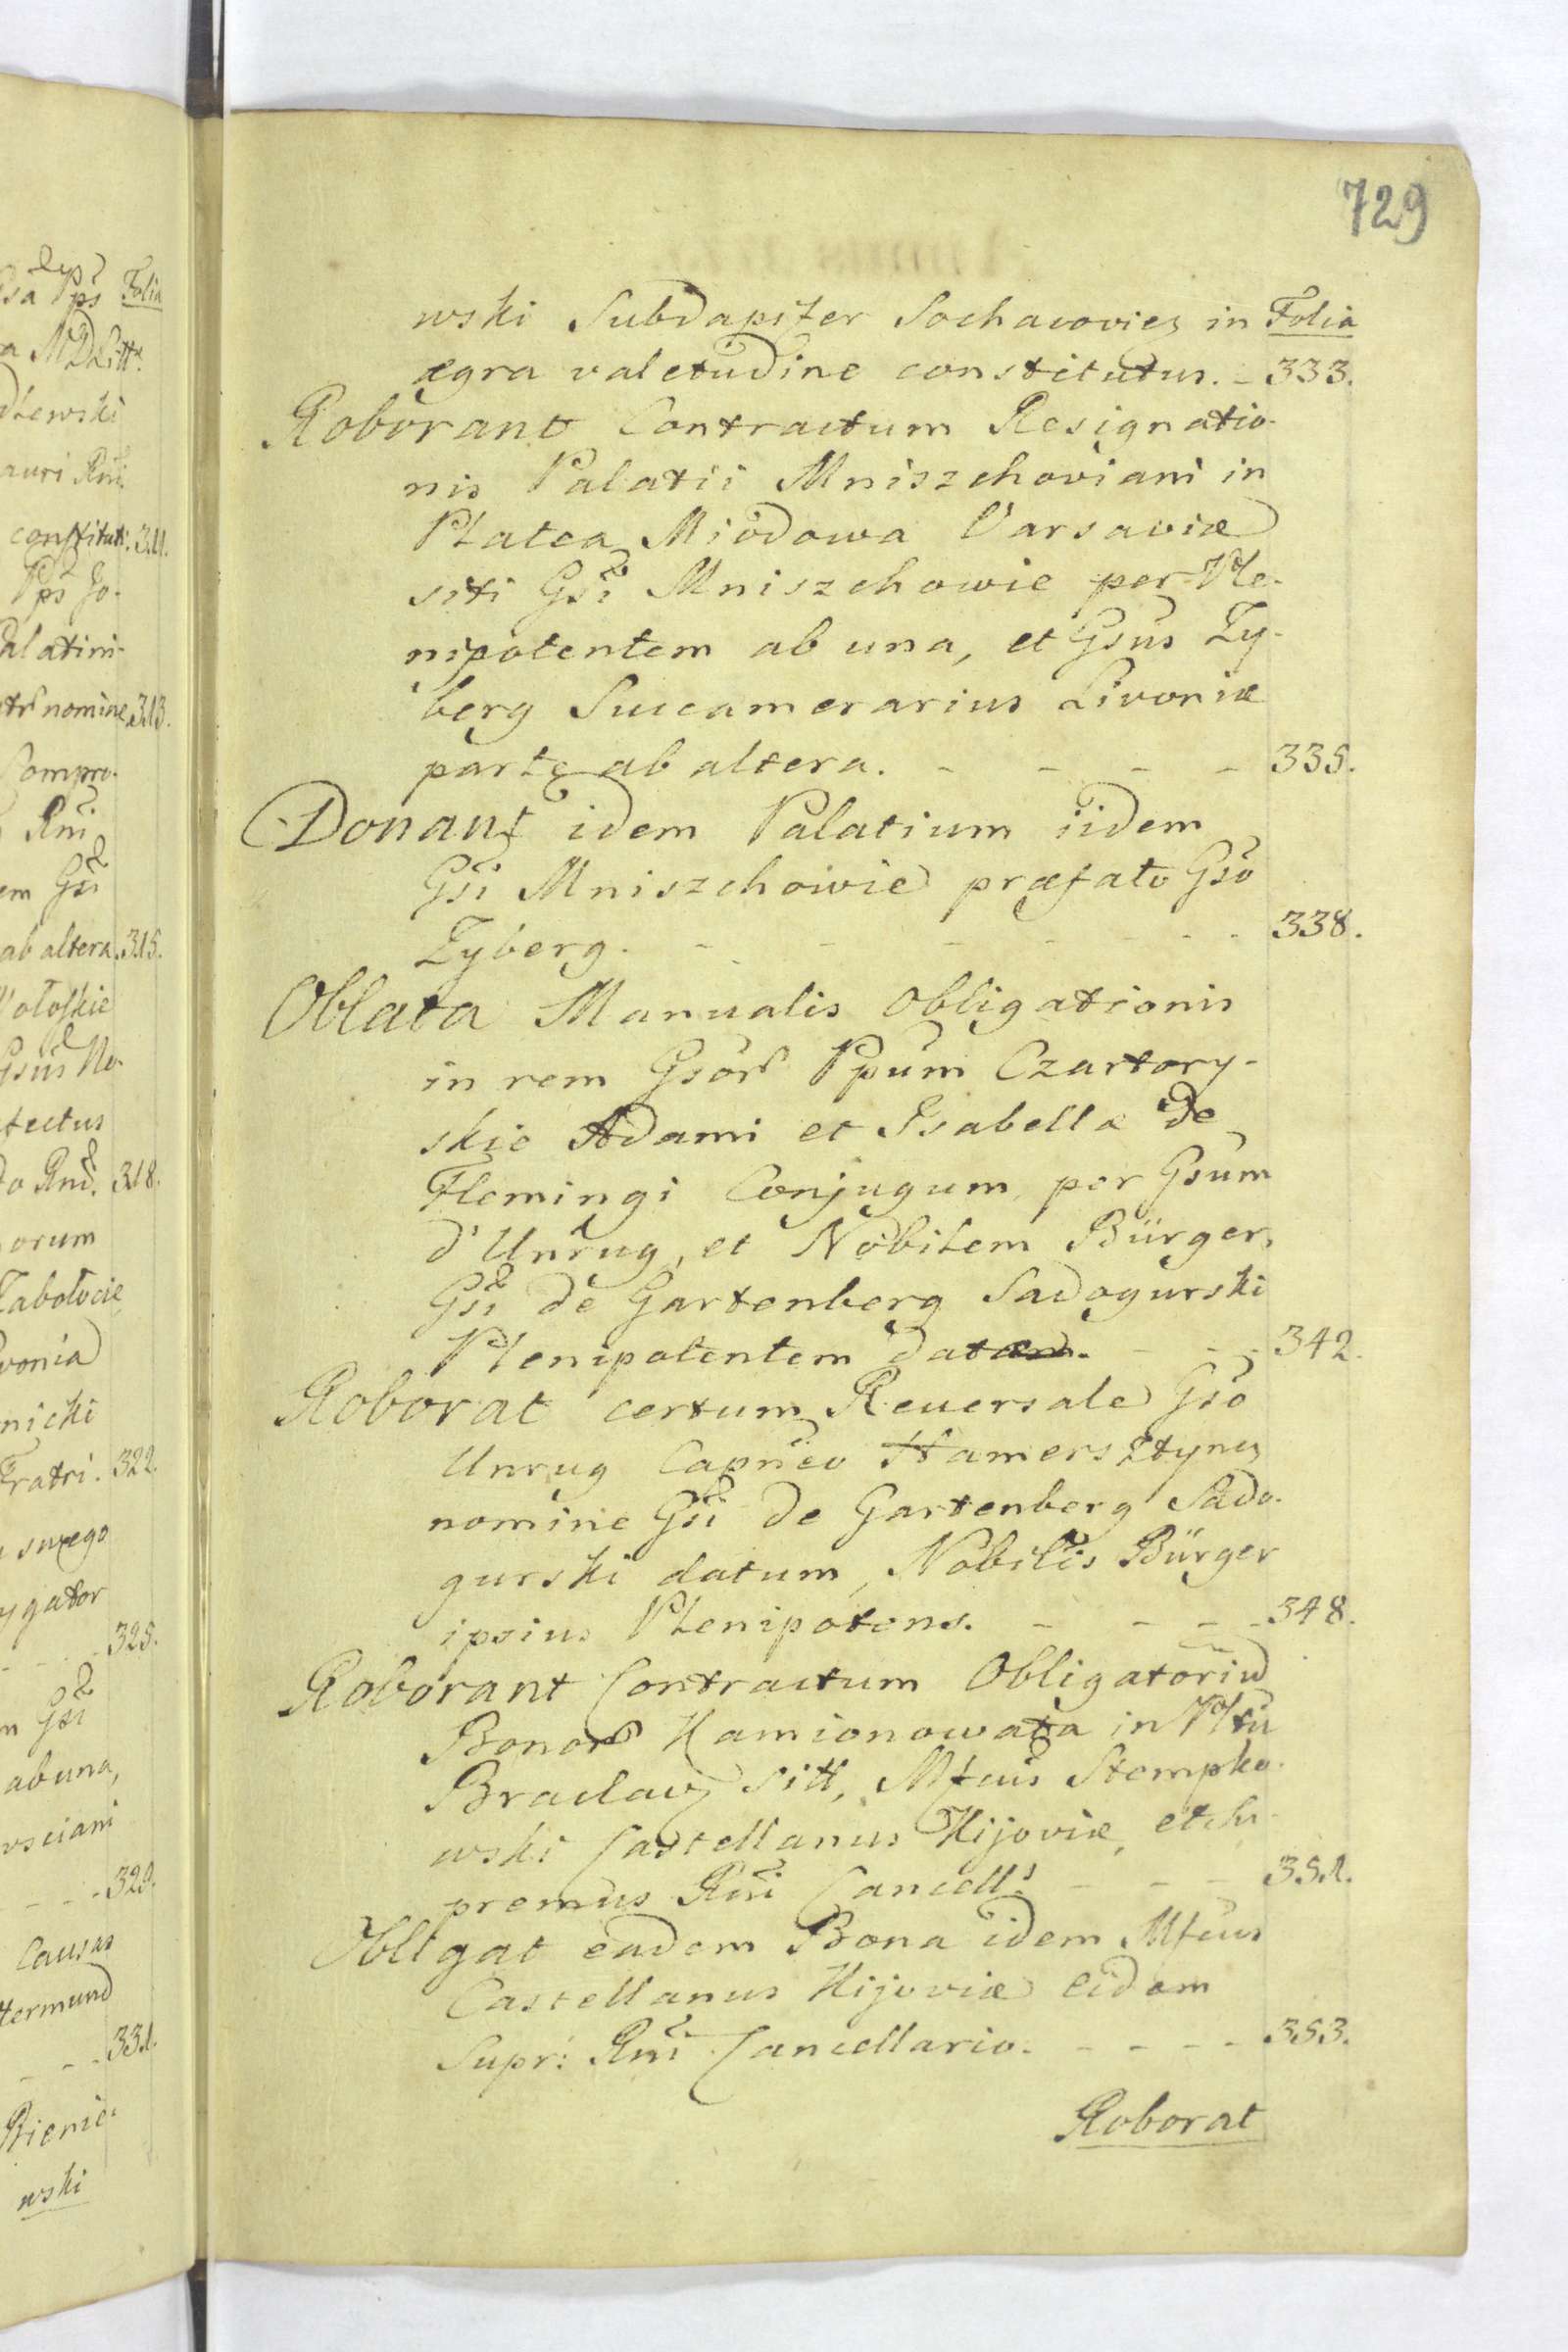 729
wski Subdapifer Sochacovieȝ in Folia
ægra valetudine constitutus. - 333.
Roborant Contractum Resignatio-
nis Palatii Mniszchoviani in
Platea Miodowa Varsaviæ
siti Gsi Mniszchowie per Ple-
nipotentem ab una, et Gsus Zy-
berg Succamerarius Livoniæ
parte ab altera. - - - - 335.
Donant idem Palatium iidem
Gsi Mniszchowie præfato Gso
Zyberg. - - - - - - 338.
Oblata Manualis Obligationis
in rem Gsor Ppum Czartory-
skie Adami et Isabellæ de
Flemingi Conjugum, per Gsum
d'Unrug, et Nobilem Bürger,
Gsi de Gartenberg Sadogurski
Plenipotentem datæ. - - - 342.
Roborat certum Reversale Gso
Unrug Capneo Hamersztynen
nomine Gsi de Gartenberg Sado-
gurski datum, Nobilis Bürger
ipsius Plenipotens. - - - - 348.
Roborant Contractum Obligatoriu
Bonor Kamionowata in Pltu
Braclav Sitt, Mfcus Stempko-
wski Castellanus Kijoviæ, et Su-
premus Rni Cancell: - - - 351.
Obligat eadem Bona idem Mfcus
Castellanus Kijoviæ eidem
Supr: Rni Cancellario. - - - - 353.
Roborat
Gsa Pps Folia
a MD Litt.
dlewski
auri Rni
constituti. 311.
Pps Jo-
Palatini-
nomine 313.
Compro-
Rni
em Gsi
ab altera. 315.
Wołoskie
Gsus
fectus
Rni. 318.
orum
Zabołocie
vonia
nicki
Fratri. 322.
swego
ygator
- - - 325.
m Gsi
ab una,
vsciani
- - - 328.
Causas
termund
- - 331.
Bienie-
wski